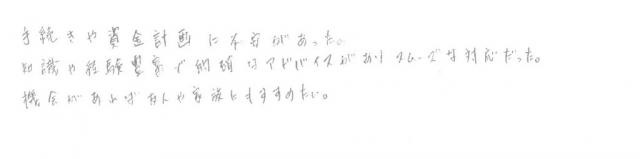 手続きや資金計画に不安があった。
知識や経験豊富で的確なアドバイスがありスムーズな対応だった。
機会があれば友人や家族にもすすめたい。